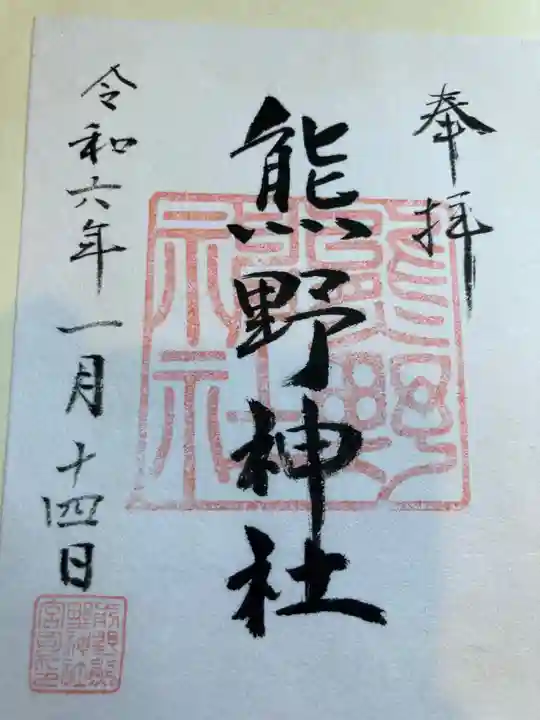 奉拝
熊野神社
令和六年一月十四日
熊野
神社